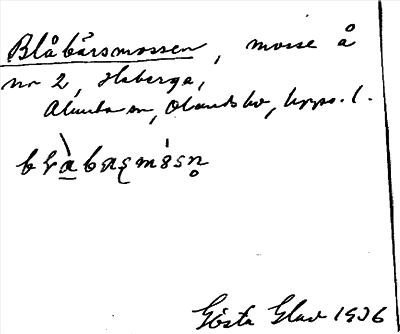 Blåbärsmossen, mosse å
nr 2, Haberga,
Alunda sn, Olands hd, Upps. l.
Gösta Glad 1936